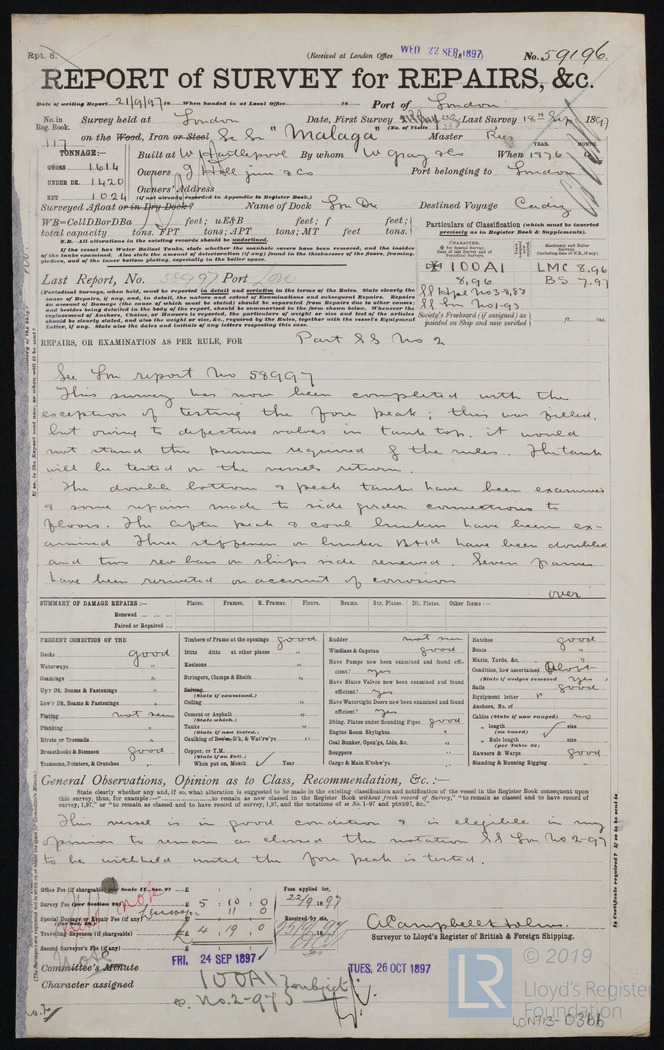 Rpt. 8.
(Received at London Office WED. 22 SEP. 1897)
No. 59196.
REPORT of SURVEY for REPAIRS, &c.
Date of writing Report 21/9/97 18 When handed in at Local Office 18 Port of London
No. in Reg. Book. Survey held at London Date, First Survey Last Survey 18th Sep. 1897
117 on the Wood, Iron or Steel Sc Sr "Malaga" Master Rees
TONNAGE:— Built at W Hartlepool By whom W Gray & Co When 1876
GROSS 1614 Owners J Hall jun & Co Port belonging to London
UNDER DK. 1420 Owners' Address
NET 1024 (if not already recorded in Appendix to Register Book.)
Surveyed Afloat or in Dry Dock? Name of Dock Lon Dk Destined Voyage Cadiz
WB=CellDBorDBa feet; uE&B feet; f feet;
total capacity tons. FPT tons; APT tons; MT feet tons.
Particulars of Classification (which must be inserted precisely as in Register Book & Supplements).
N.B.—All alterations in the existing records should be underlined.
If the vessel has Water Ballast Tanks, state whether the manhole covers have been removed, and the insides of the tanks examined. Also state the amount of deterioration (if any) found in the thicknesses of the floors, framing, girders, and of the inner bottom plating, especially in the boiler space.
Last Report, No. 58997 Port Lon
100A1 LMC 8.96
8,96 BS 7.97
SS Hpl No 3-8,88
SS Lon No 1-93
Society's Freeboard (if assigned) as painted on Ship and now verified ft. ins.
(Periodical Surveys, when held, must be reported in detail and seriatim in the terms of the Rules. State clearly the cause of Repairs, if any, and, in detail, the nature and extent of Examinations and subsequent Repairs. Repairs on account of Damage (the cause of which must be stated) should be separated from Repairs due to other causes; and besides being detailed in the body of the report, should be summarised in the form shown below. Whenever the replacement of Anchors, Chains, or Hawsers is reported, the particulars of weight or size and test of the articles should be clearly stated, and also the weight or size, &c., required by the Rules, together with the vessel's Equipment Letter, if any. State also the dates and initials of any letters respecting this case.
REPAIRS, OR EXAMINATION AS PER RULE, FOR Part SS No 2
See Lon report No 58997
This survey has now been completed with the
exception of testing the fore peak; this was filled,
but owing to defective valves in tank top, it would
not stand the pressure required by the rules. The tank
will be tested on the vessels return.
The double bottom & peak tanks have been examined
& some repairs made to side girder connections to
floors. The after peak & coal bunkers have been ex-
amined Three stiffeners on bunker Bhd have been doubled
and two rev bars on ships side renewed. Seven frames
have been renewed on account of corrosion
over
SUMMARY OF DAMAGE REPAIRS:— Plates. Frames. R. Frames. Floors. Beams. Str. Plates. Dk. Plates. Other Items:—
Renewed
Faired or Repaired
PRESENT CONDITION OF THE
Decks good
Waterways "
Coamings "
Up'r Dk. Beams & Fastenings "
Low'r Dk. Beams & Fastenings "
Plating not seen
Planking
Rivets or Treenails
Breasthooks & Stemson good
Transoms, Pointers, & Crutches "
Timbers of Frame at the openings good
Ditto ditto at other places "
Keelsons "
Stringers, Clamps & Shelfs "
Salting. (State if examined.)
Ceiling "
Cement or Asphalt (State which.) "
Tanks (State if now tested.) "
Caulking of Bottom, D'k, & Wat'rw'ys "
Copper, or Y.M. (State if on Felt.)
When put on, Month Year
Rudder not seen
Windlass & Capstan good
Have Pumps now been examined and found efficient? yes
Have Sluice Valves now been examined and found efficient? yes
Have Watertight Doors now been examined and found efficient? yes
Dbling. Plates under Sounding Pipes good
Engine Room Skylights "
Coal Bunker, Open'gs, Lids, &c. "
Scuppers "
Cargo & Main H'tchw'ys "
Hatches good
Boats "
Masts, Yards, &c. "
Condition, how ascertained Aloft
(State if wedges removed yes)
Sails good
Equipment letter
Anchors, No. of
Cables (State if now ranged) no
" length (on board) size
" Rule length (per Table 22) size
Hawsers & Warps good
Standard & Running Rigging "
General Observations, Opinion as to Class, Recommendation, &c.:—
State clearly whether any, and if so, what alteration is suggested to be made in the existing classification and notification of the vessel in the Register Book consequent upon this survey, thus, for example:— "to remain as now classed in the Register Book without fresh record of Survey," "to remain as classed and to have record of survey, 1,97," or "to remain as classed and to have record of survey, 1,97, and the notations of ss No. 1-97 and ptND97, &c."
This vessel is in good condition & is eligible in my
opinion to remain as classed the notation SS Lon No 2-97
to be withheld until the fore peak is tested.
Office Fee (if chargeable) per Scale II., Sec. 27) £ : :
Survey Fee (per Section 28) £ 5 : 10 : 0
Special Damage or Repair Fee (if any) (per Sec. 28.) Less 11 : 0
Travelling Expenses (if chargeable) £ 4 : 19 : 0
Second Surveyor's Fee (if any) £ : :
Fees applied for, 22/9 1897
Received by me,
A Campbell Holms.
Surveyor to Lloyd's Register of British & Foreign Shipping.
Committee's Minute FRI. 24 SEP 1897 TUES. 26 OCT 1897
Character assigned 100A1 subject
s. No. 2-97
Note
© 2019
LR
Lloyd's Register Foundation
LON713-0366